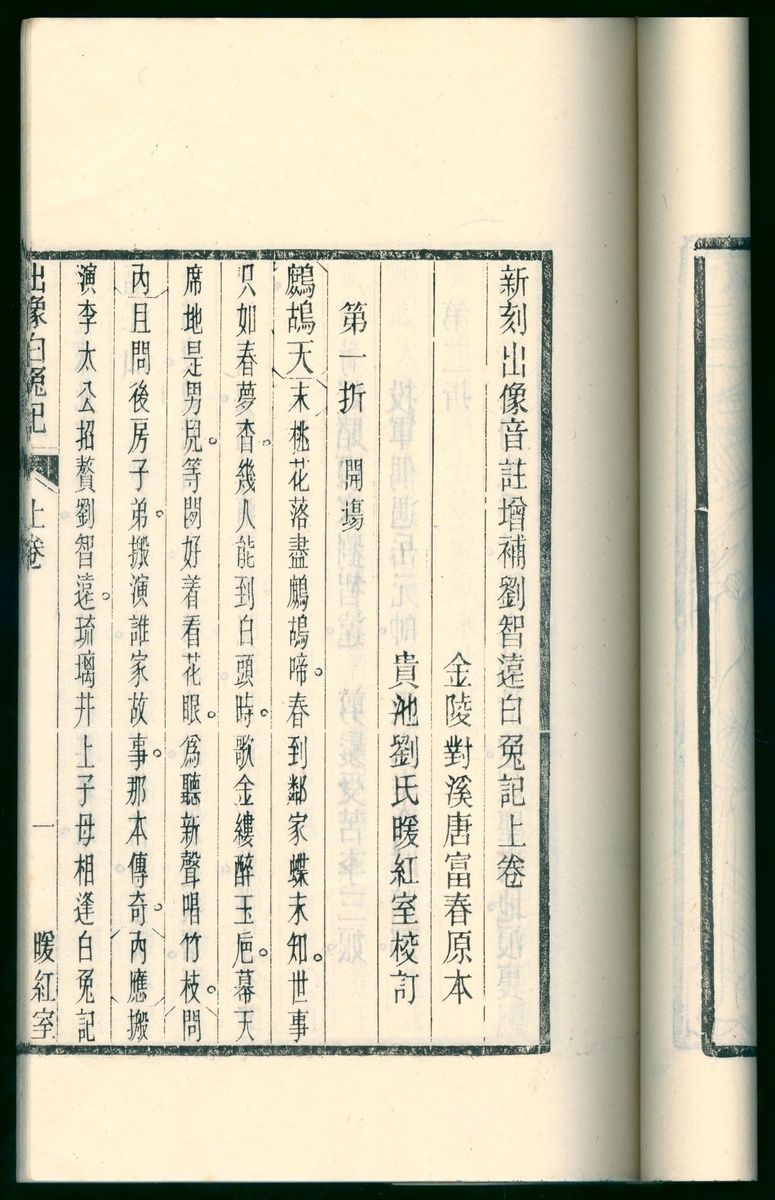 新刻出像音註增補劉智遠白兔記上卷
金陵對溪唐富春原本
貴池劉氏暖紅室校訂
第一折　開塲
鷓鴣天末桃花落盡鷓鴣啼。春到鄰家蝶未知。世事
只如春夢杳。幾人能到白頭時。歌金縷醉玉巵。幕天
席地是男兒。等閒好着看花眼。爲聽新聲唱竹枝。問
內且問後房子弟。搬演誰家故事。那本傳奇。內應搬
演李太公招贅劉智遠。琉璃井上子母相逢白兔記
出像白兔記　上卷　一　暖紅室